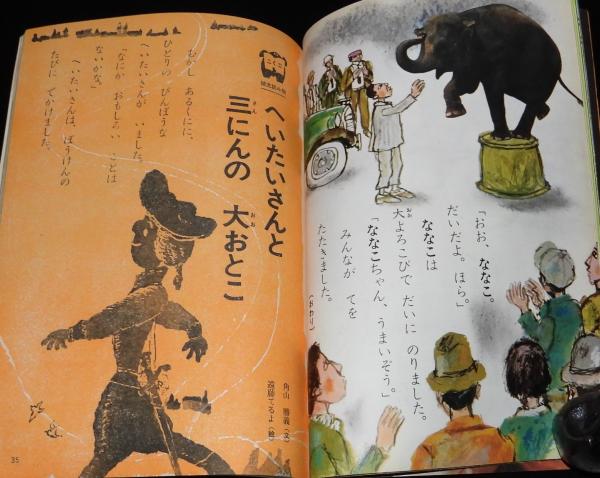 「おお、ななこ。
だいだよ。ほら。」
ななこは
大よろこびで だいに のりました。
おお
「ななこちゃん、うまいぞう。」
みんなが てを
たたきました。
(おわり)
こくご
へいたいさんと
三にんの 大おとこ
さん
おお
角山 勝義(文)
遠藤てるよ(絵)
むかし あるくにに、
ひとりの びんぼうな
へいたいさんが いました。
「なにか おもしろい ことは
ないかな。」
へいたいさんは、ぼうけんの
たびに でかけました。
35